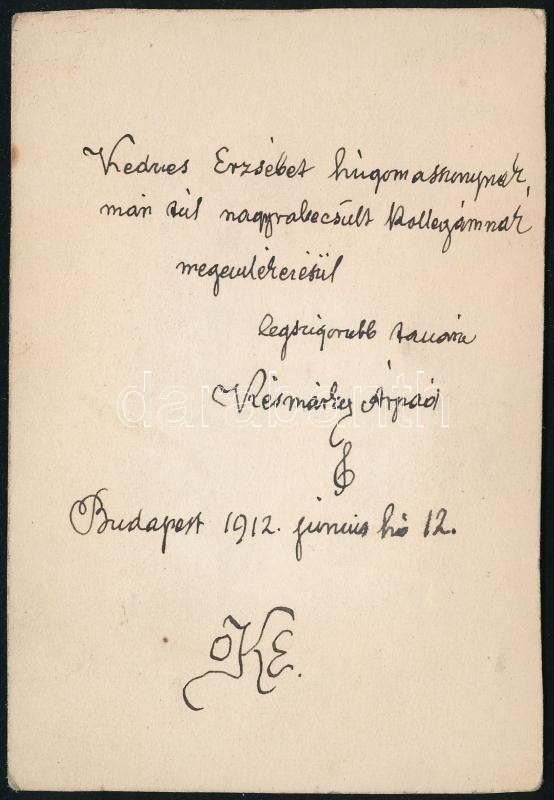 Kedves Erzsébet húgomasszonynak,
már túl nagyrabecsült kollegámnak
megemlékezésül
legszigorubb tanára
Késmárky Árpád
Budapest 1912. június hó 12.
KE.
darabanth